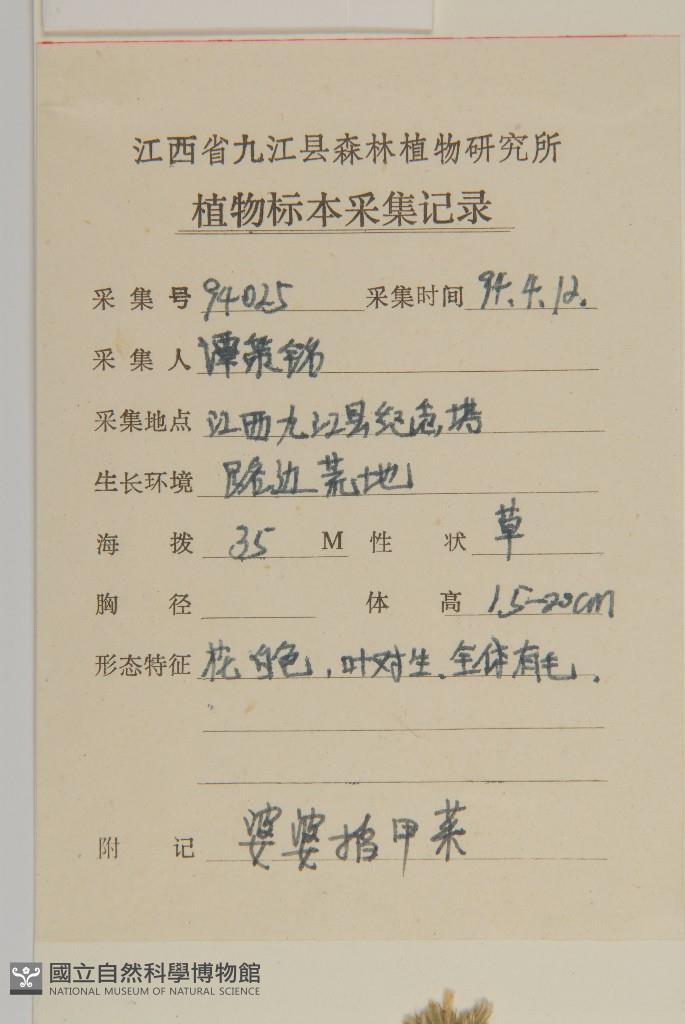 江西省九江县森林植物研究所
植物标本采集记录
采集号 94025 采集时间 94.4.12.
采集人 谭策铭
采集地点 江西九江县纪念塔
生长环境 路边荒地
海拨 35 M 性状 草
胸径 体高 15-20cm
形态特征 花白色，叶对生、全体有毛．
附记 婆婆指甲菜
國立自然科學博物館
NATIONAL MUSEUM OF NATURAL SCIENCE